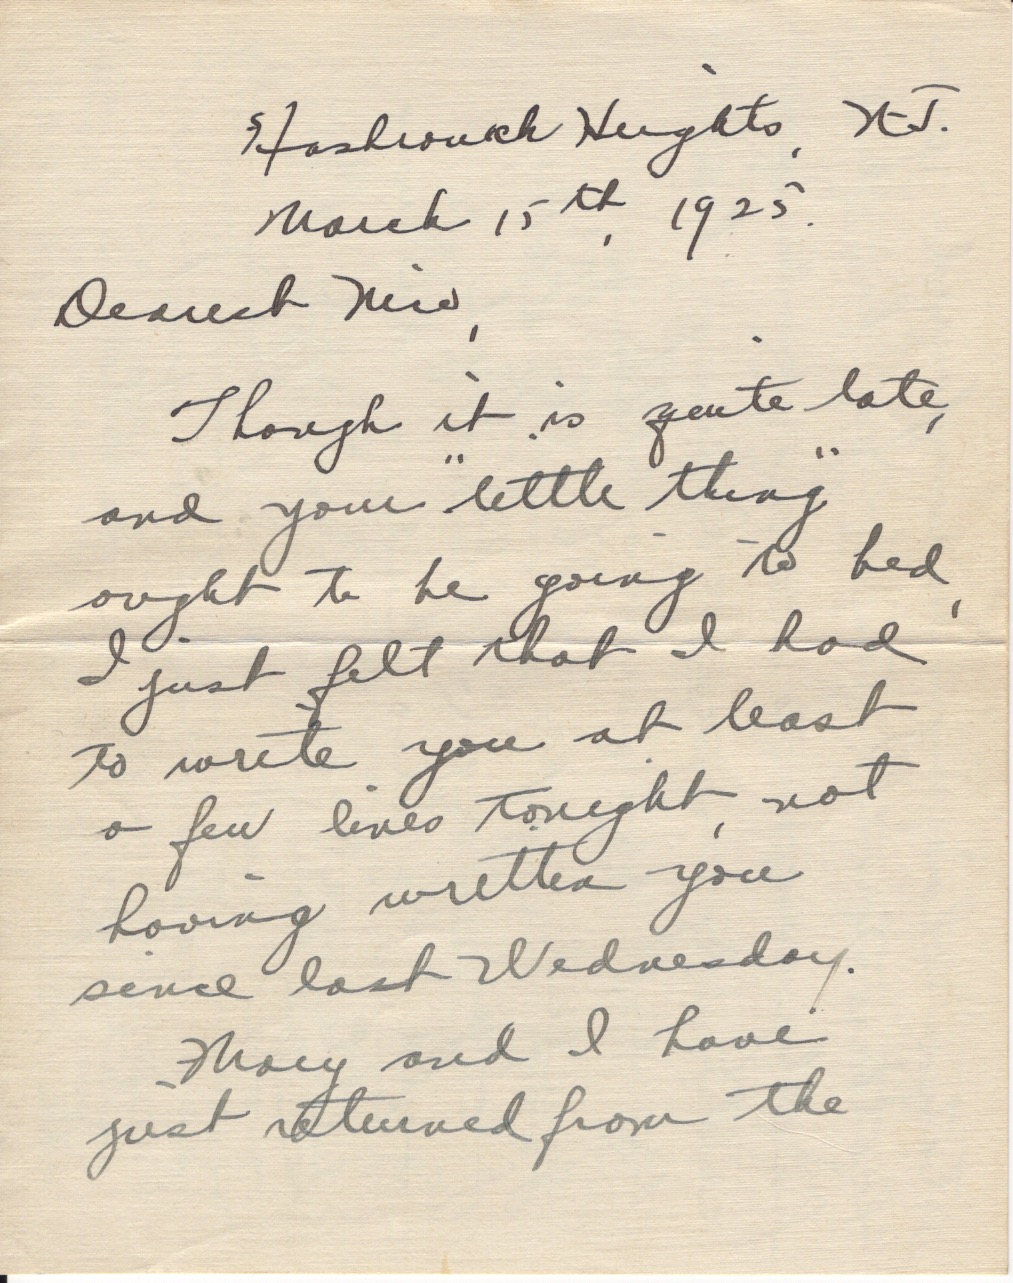 Hasbrouck Heights, N.J.
March 15th, 1925.
Dearest
Though it is quite late,
and your "little thing"
ought to be going to bed,
I just felt that I had
to write you at least
a few lines tonight, not
having written you
since last Wednesday.
Mary and I have
just returned from the